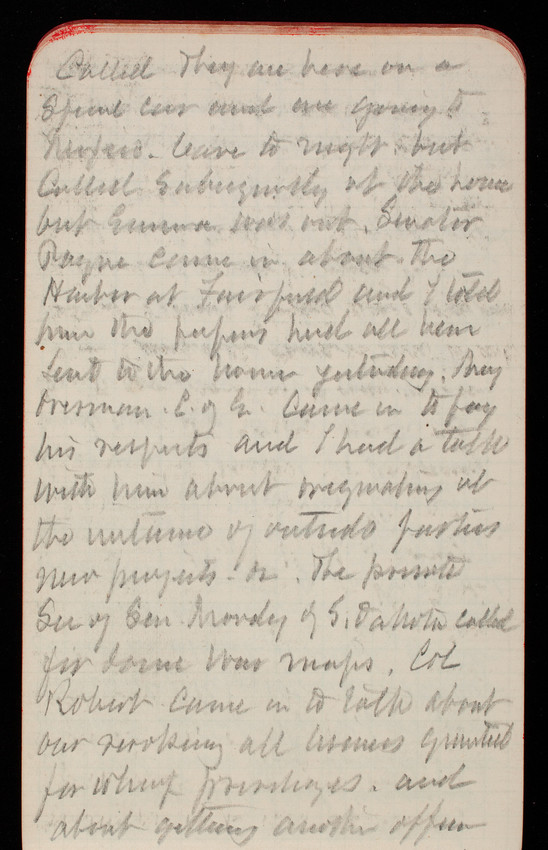 Called They are here on a
Special car and are going to
leave to night but
Called Subsequently at the house
but Emma was out. Senator
Payne came in about the
Harbor at Fairport and I told
him the papers had all been
Sent to the house yesterday. Maj
Overman C. of E. came in to pay
his respects and I had a talk
with him about originating at
the instance of outside parties
new projects - &c. The private
Sec of Sen Moody of S. Dakota called
for some War maps. Col
Robert came in to talk about
our revoking all licenses granted
for wharf privileges. and
about getting another officer